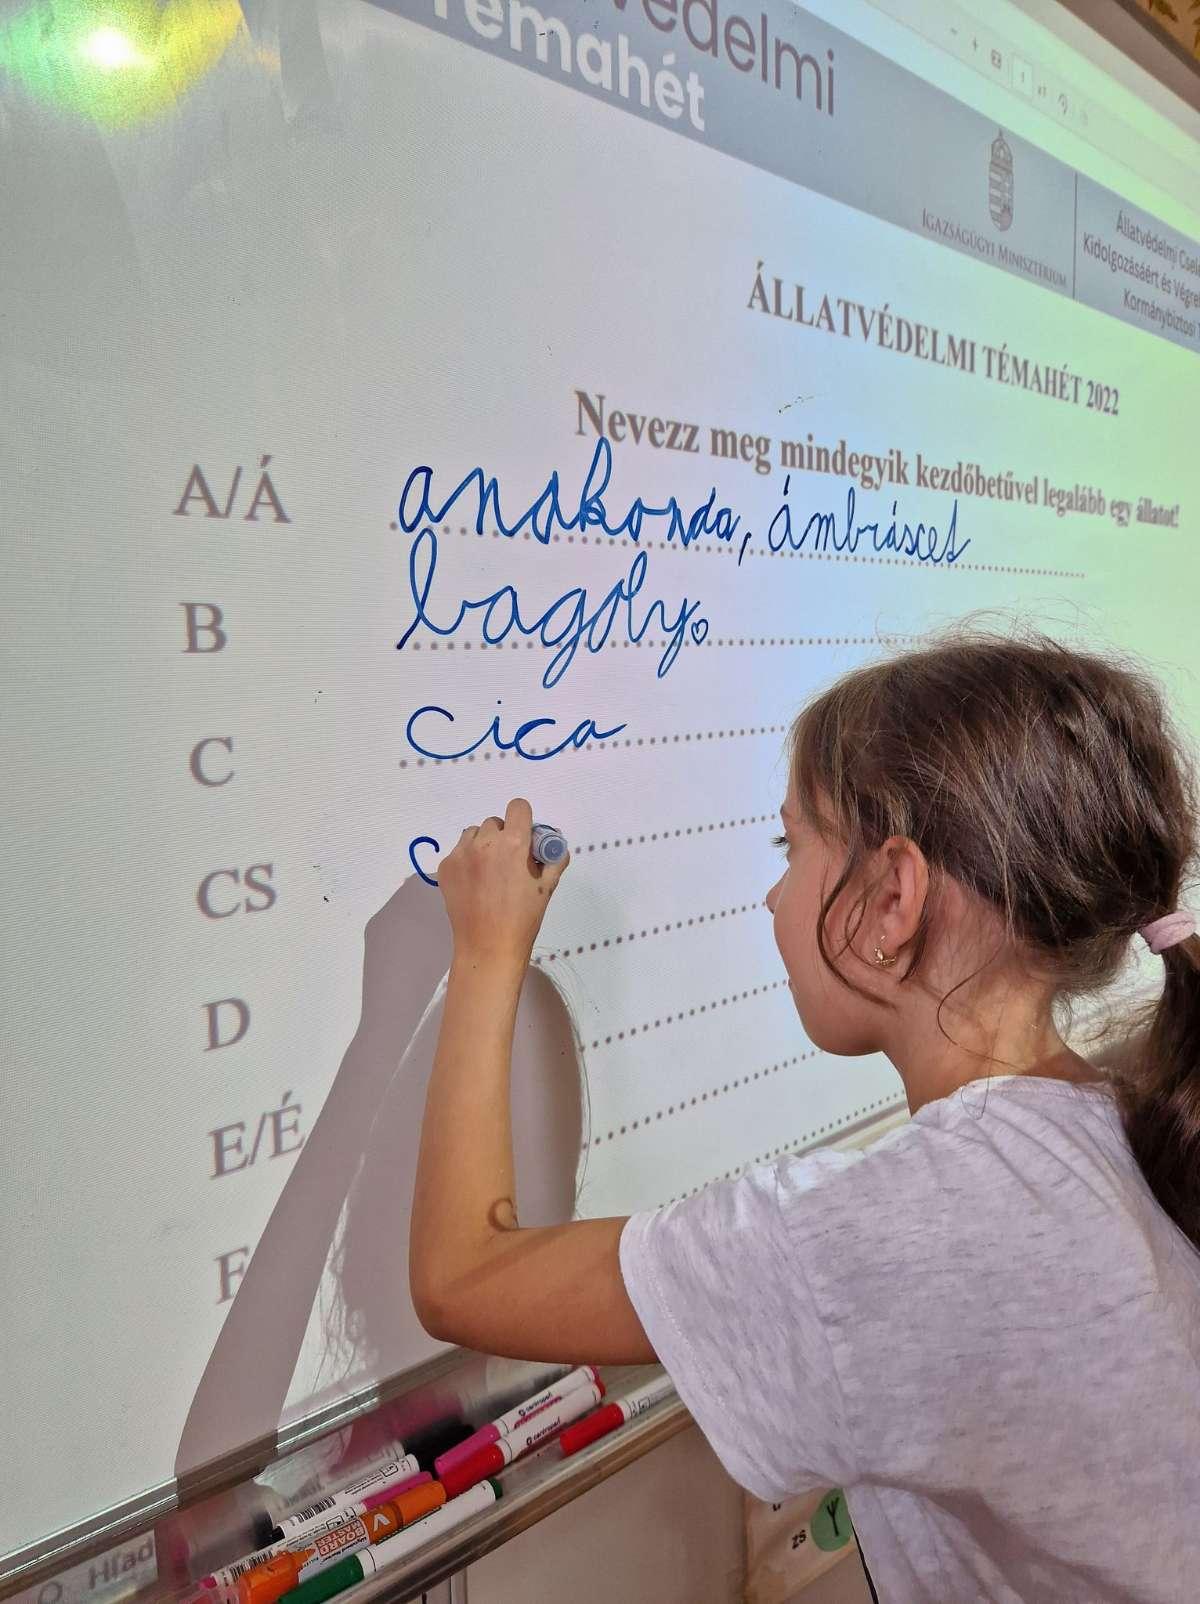 védelmi
Témahét
IGAZSÁGÜGYI MINISZTÉRIUM
Állatvédelmi
Kidolgozásáért és
Kormánybiztosi
ÁLLATVÉDELMI TÉMAHÉT 2022
Nevezz meg mindegyik kezdőbetűvel legalább egy állatot!
A/Á anakonda, ámbráscet
B bagoly
C cica
CS c
D
E/É
F
centropen
centropen
BOARD MASTER V
Hľad
zs